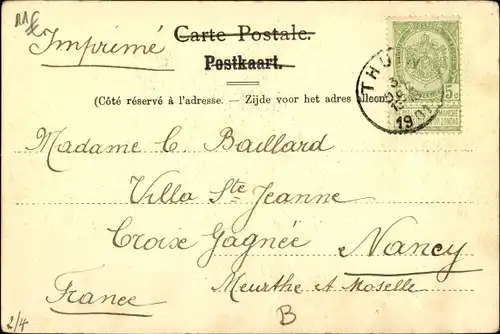 Imprimé
Carte Postale.
Postkaart.
(Côté réservé à l'adresse. — Zijde voor het adres alleen.)
THU
1901
5c
Madame C. Baillard
Villa Ste Jeanne
Croix Gagnée
Nancy
Meurthe et Moselle
France
B
2/4